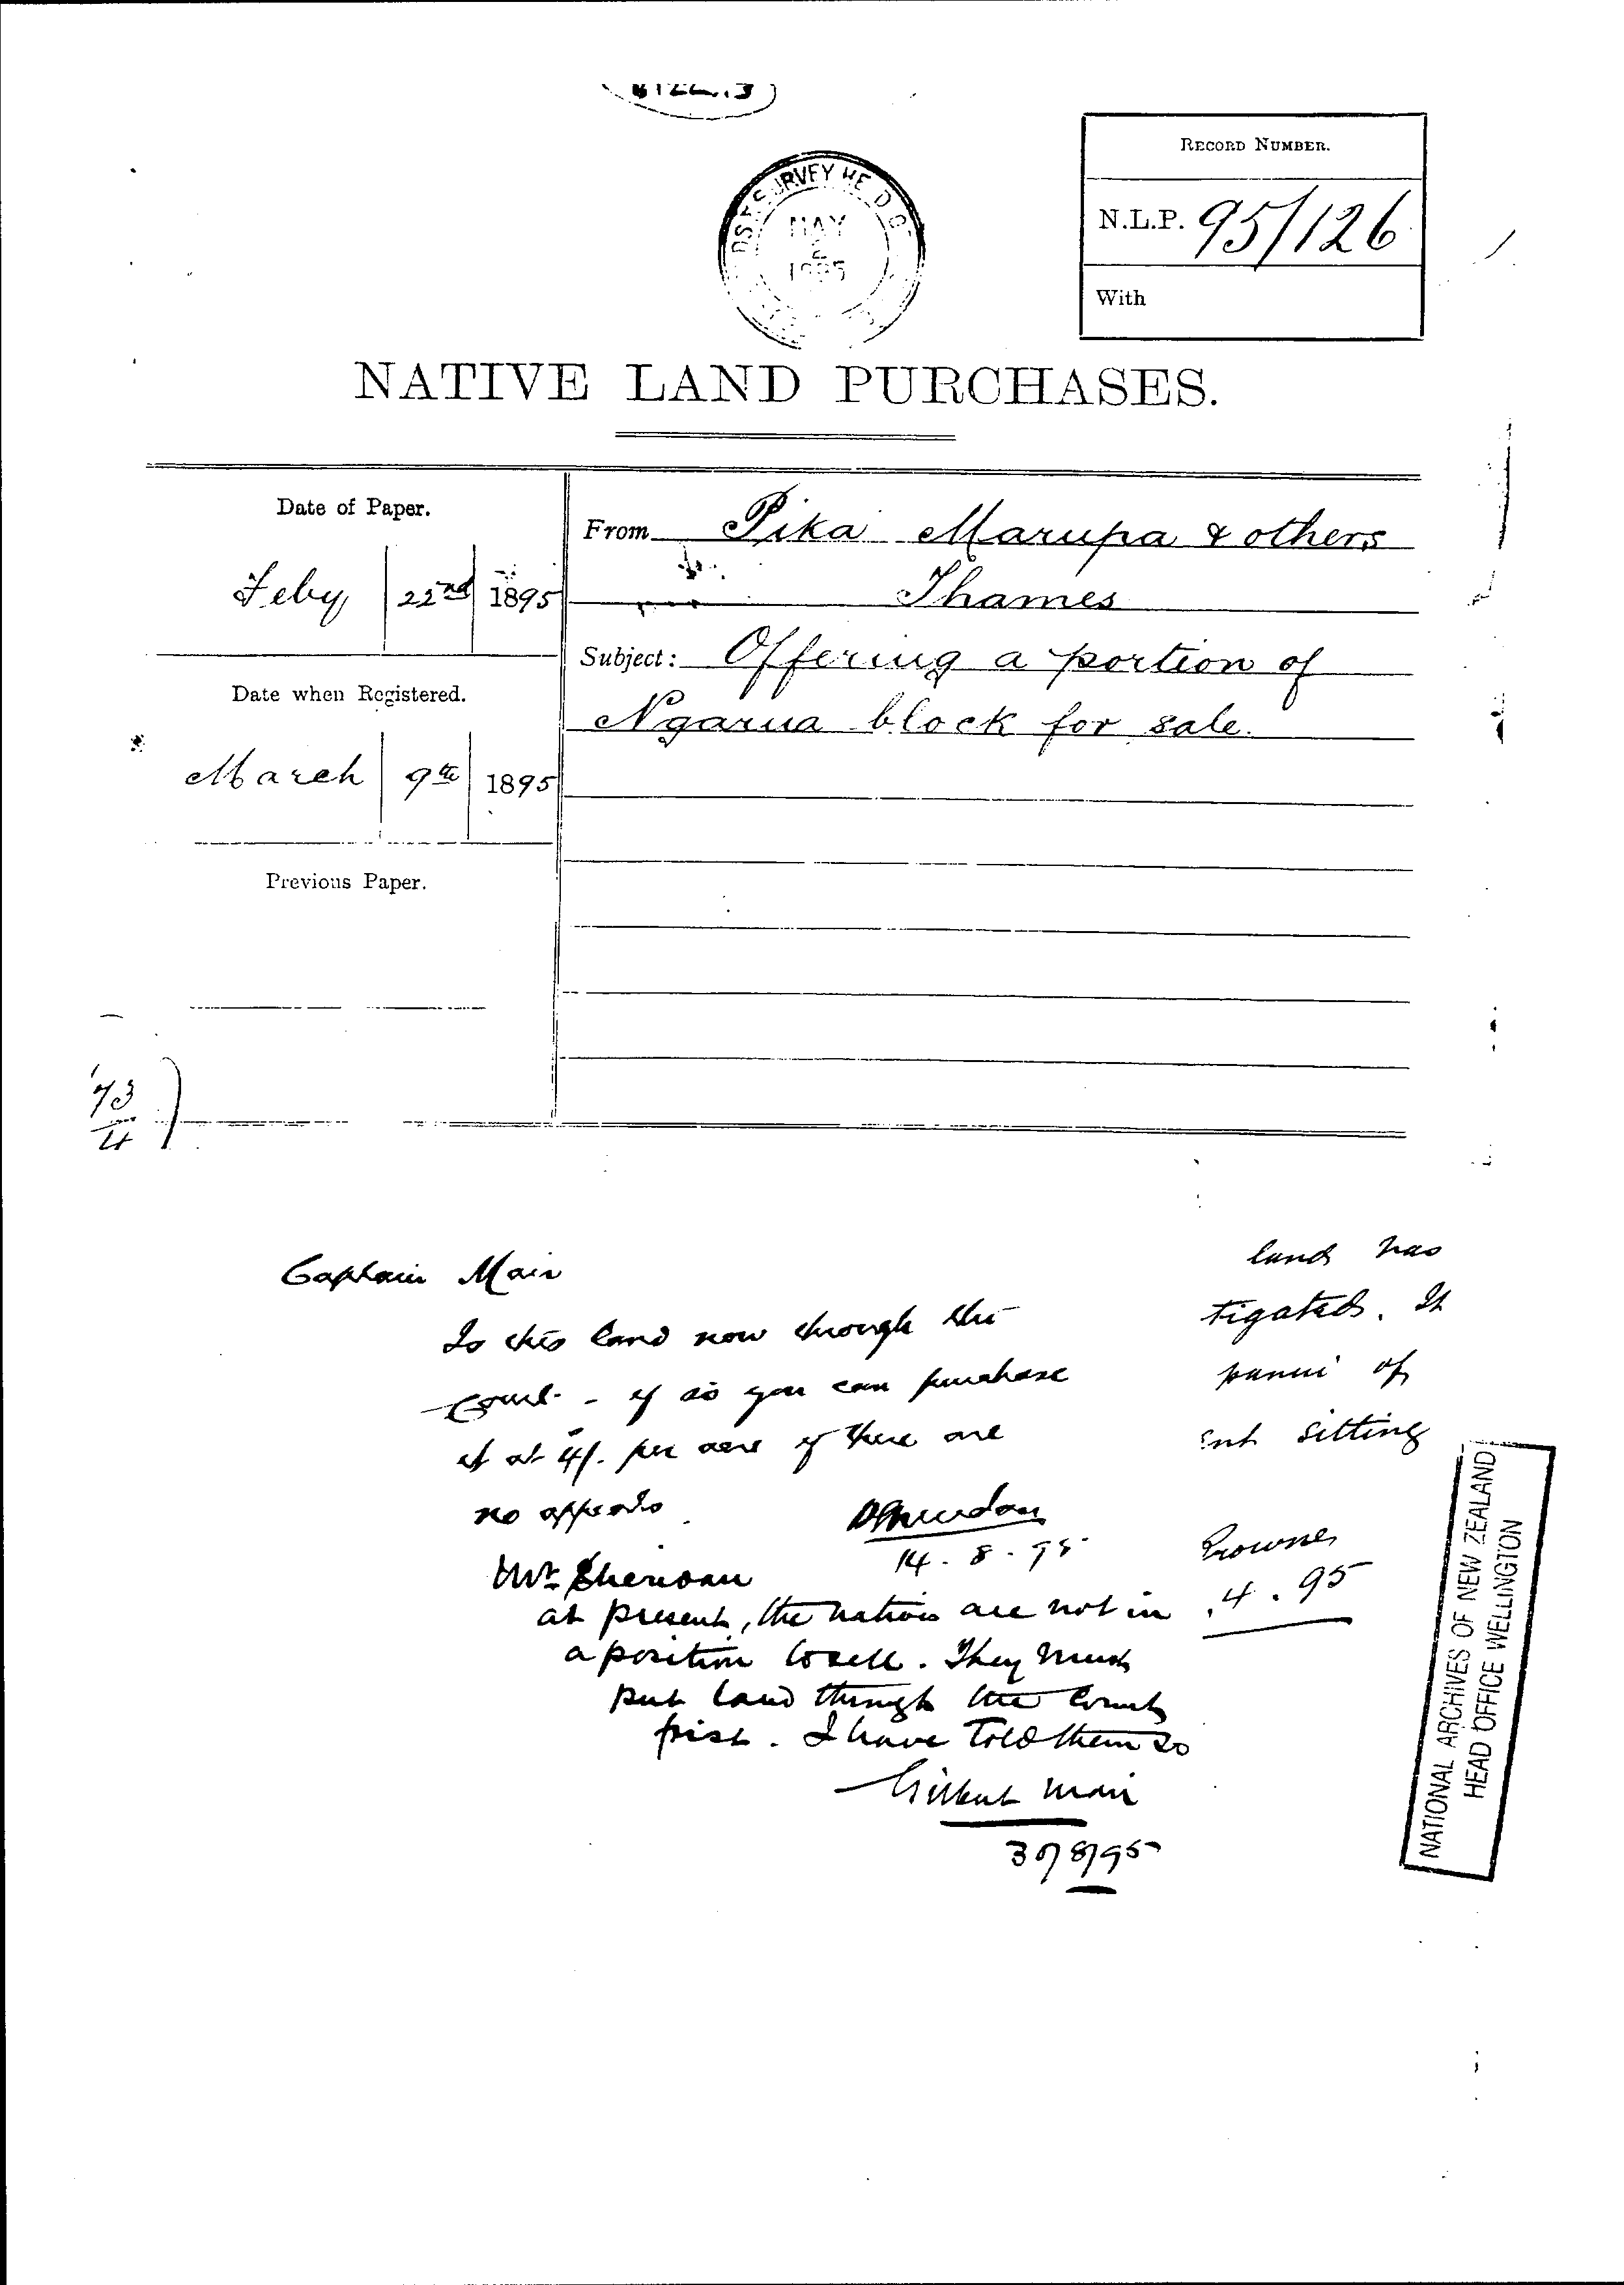 RECORD NUMBER.
N.L.P. 95/126
With
SURVEY
MAY
2
1895
NATIVE LAND PURCHASES.
Date of Paper.
Feby 22nd 1895
From Pika Marupa & others
Thames
Subject: Offering a portion of
Ngarua block for sale.
Date when Registered.
March 9th 1895
Previous Paper.
73
4
Captain Mair
Is this land now through the
Court - if so you can purchase
it at 4/. per acre if there are
no appeals
P Sheridan
14. 8. 95
land has
tigated. It
panui of
ent sitting
Browne
.4.95
Mr Sheridan
at present, the natives are not in
a position to sell. They must
put land through the Court
first. I have told them so
Gilbert Mair
30/8/95
NATIONAL ARCHIVES OF NEW ZEALAND
HEAD OFFICE WELLINGTON